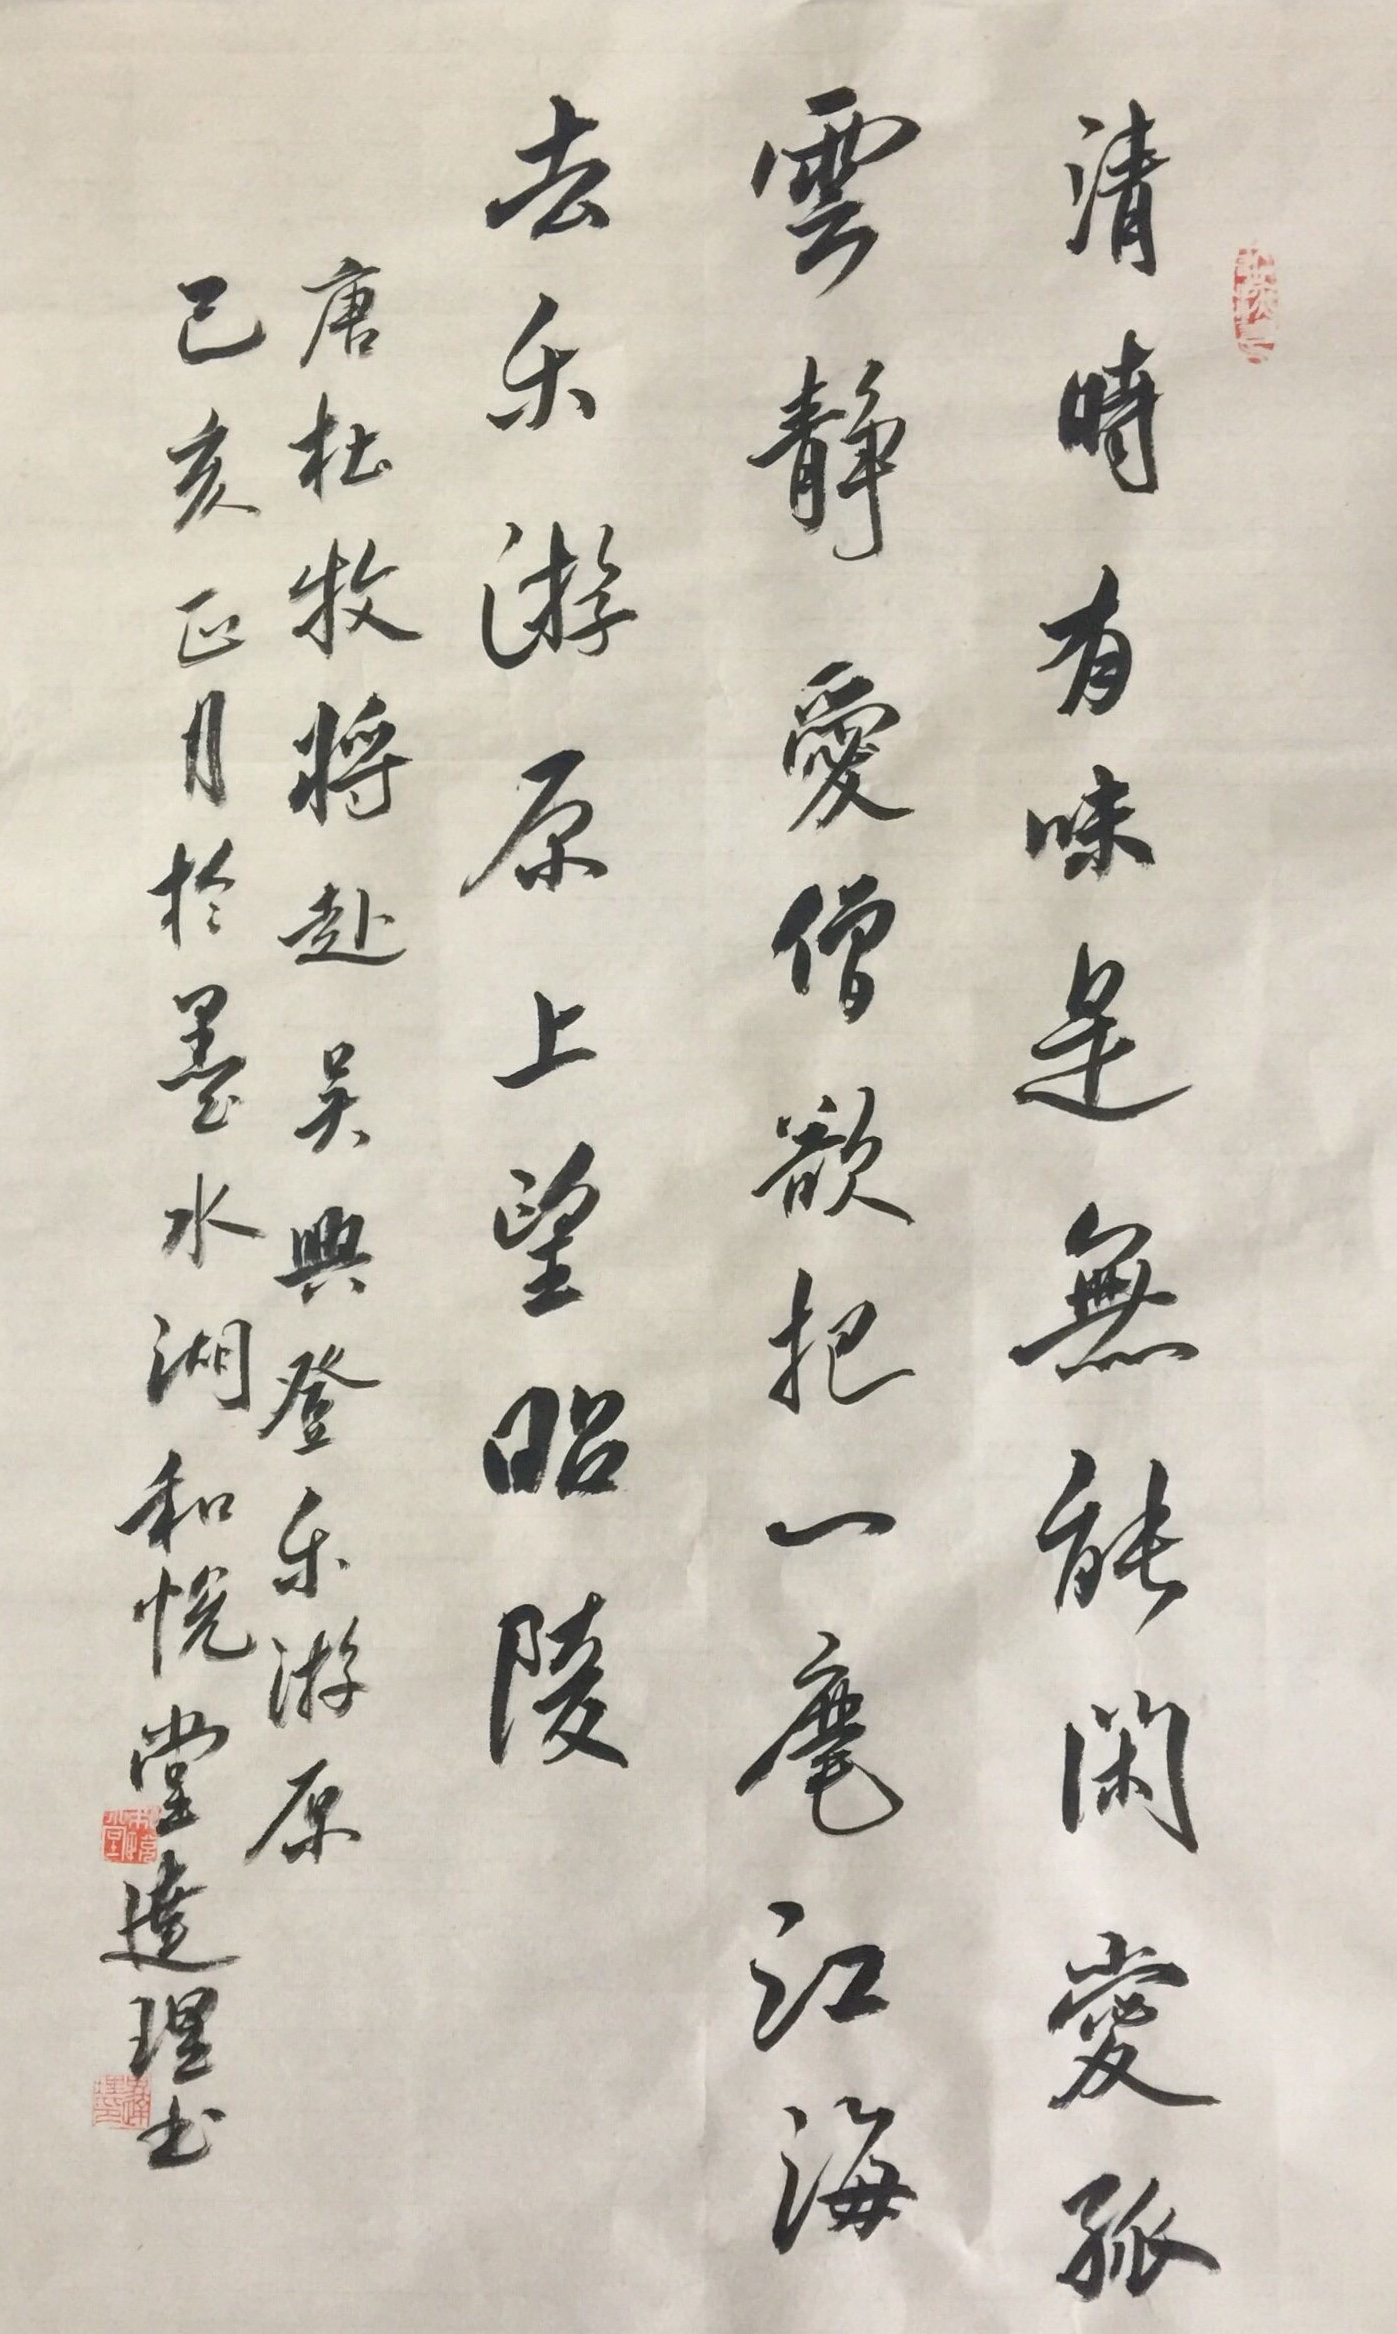 清時有味是無能閑愛孤
雲靜愛僧欲把一麾江海
去乐游原上望昭陵
唐杜牧将赴吴興登乐游原
己亥正月於墨水湖和悦堂達理书